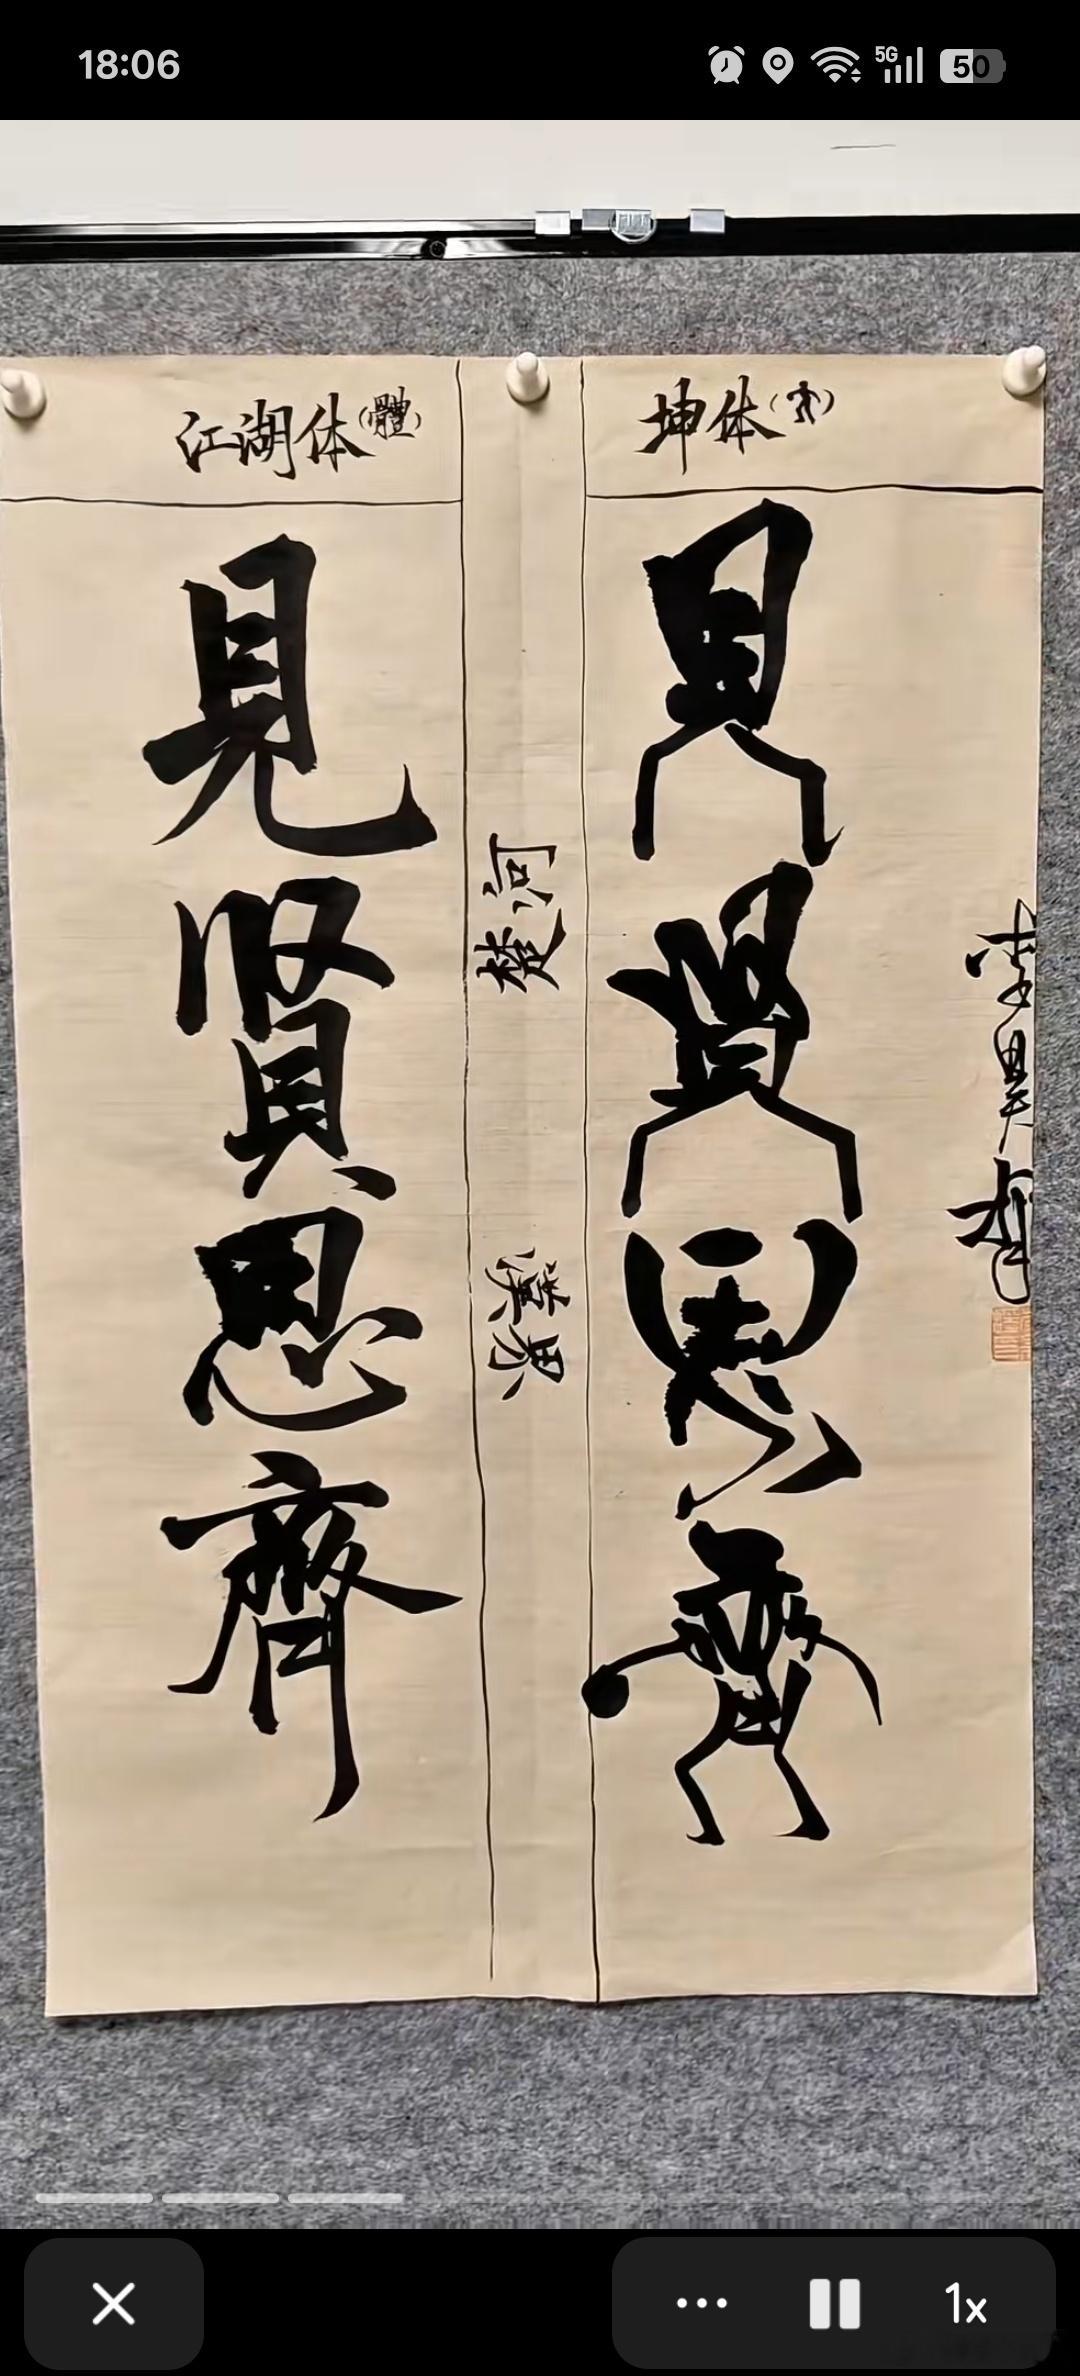 18:06
5G
50
江湖体(體)
坤体
見賢思齊
楚河
漢界
見賢思齊
1x